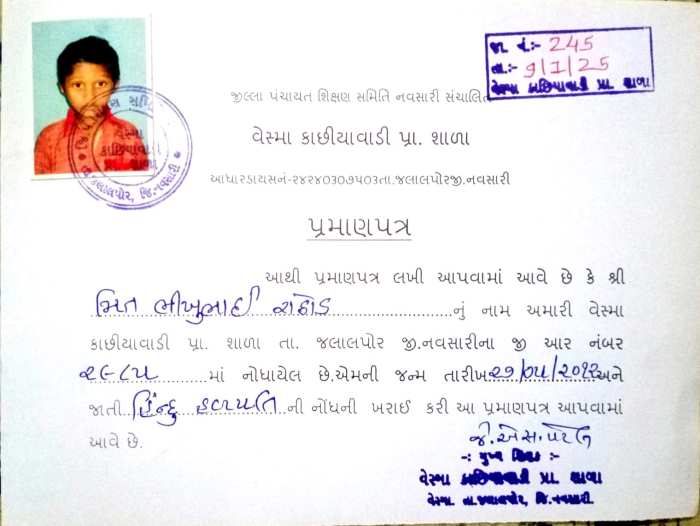 જા. નં:- 245
તા:- 9/1/25
વેસ્મા કાછિયાવાડી પ્રા. શાળા
જીલ્લા પંચાયત શિક્ષણ સમિતિ નવસારી સંચાલિત
વેસ્મા કાછીયાવાડી પ્રા. શાળા
આધારડાયસનં-૨૪૨૪૦૩૦૭૫૦૩તા.જલાલપોરજી.નવસારી
પ્રમાણપત્ર
આથી પ્રમાણપત્ર લખી આપવામાં આવે છે કે શ્રી
મિત ભીખુભાઈ રાઠોડ નું નામ અમારી વેસ્મા
કાછીયાવાડી પ્રા. શાળા તા. જલાલપોર જી.નવસારીના જી આર નંબર
૨૯૮૫ માં નોધાયેલ છે.એમની જન્મ તારીખ ૨૭/૦૫/૨૦૧૨ અને
જાતી હિન્દુ હળપતિ ની નોંધની ખરાઈ કરી આ પ્રમાણપત્ર આપવામાં
આવે છે.
જી.એસ.પટેલ
-: મુખ્ય શિક્ષક :-
વેસ્મા કાછિયાવાડી પ્રા. શાળા
વેસ્મા તા.જલાલપોર, જિ.નવસારી.